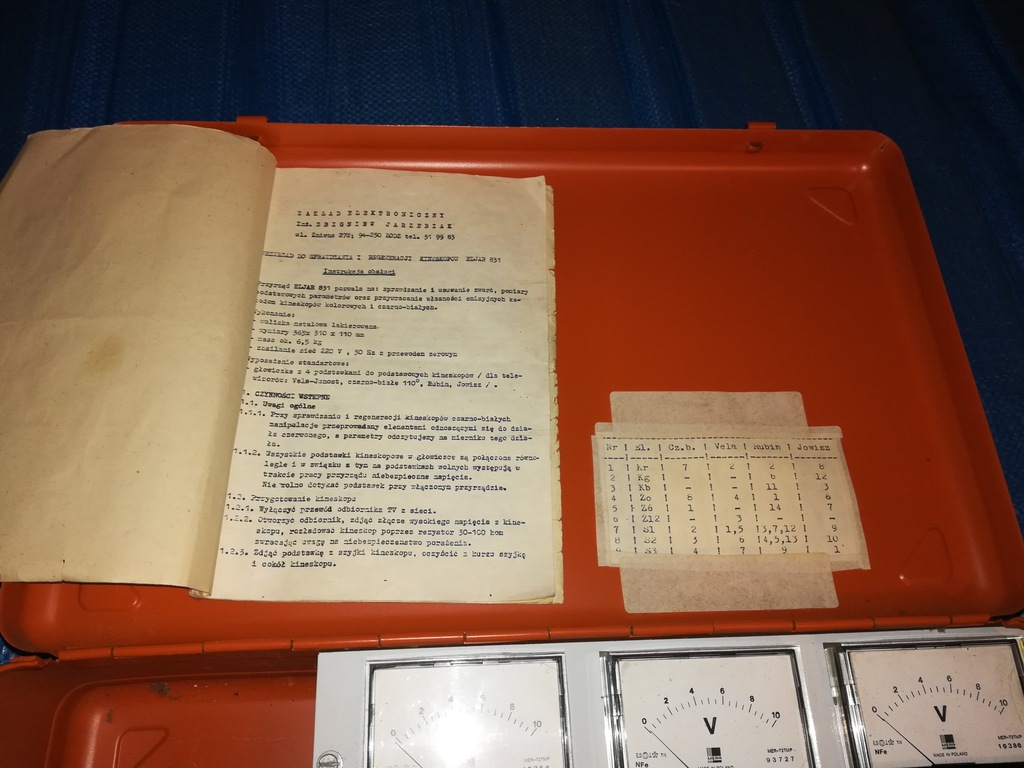 ZAKŁAD ELEKTRONICZNY
Inż. ZBIGNIEW JARZĘBIAK
ul. Żniwna 27B; 94-250 ŁÓDŹ tel. 51 99 83
PRZYRZĄD DO SPRAWDZANIA I REGENERACJI KINESKOPÓW ELJAR 831
Instrukcja obsługi
Przyrząd ELJAR 831 pozwala na: sprawdzanie i usuwanie zwarć, pomiary
podstawowych parametrów oraz przywracanie własności emisyjnych ka-
todom kineskopów kolorowych i czarno-białych.
Wykonanie:
- walizka metalowa lakierowana
- wymiary 365x 310 x 110 mm
- masa ok. 6,5 kg
- zasilanie sieć 220 V , 50 Hz z przewodem zerowym
Wyposażenie standartowe:
- głowiczka z 4 podstawkami do podstawowych kineskopów / dla tele-
wizorów: Vela-Junost, czarno-białe 110°, Rubin, Jowisz / .
1. CZYNNOŚCI WSTĘPNE
1.1. Uwagi ogólne
1.1.1. Przy sprawdzaniu i regeneracji kineskopów czarno-białych
manipulacje przeprowadzamy elementami odnoszącymi się do dzia-
łu czerwonego, a parametry odczytujemy na mierniku tego dzia-
łu.
1.1.2. Wszystkie podstawki kineskopowe w głowiczce są połączone równo-
legle i w związku z tym na podstawkach wolnych występują w
trakcie pracy przyrządu niebezpieczne napięcia.
Nie wolno dotykać podstawek przy włączonym przyrządzie.
1.2. Przygotowanie kineskopu
1.2.1. Wyłączyć przewód odbiornika TV z sieci.
1.2.2. Otworzyć odbiornik, zdjąć złącze wysokiego napięcia z kine-
skopu, rozładować kineskop poprzez rezystor 30-100 kom
zwracając uwagę na niebezpieczeństwo porażenia.
1.2.3. Zdjąć podstawkę z szyjki kineskopu, oczyścić z kurzu szyjkę
i cokół kineskopu.
Nr ! El. ! Cz.b. ! Vela ! Rubin ! Jowisz
1 ! Kr ! 7 ! 2 ! 2 ! 8
2 ! Kg ! - ! - ! 6 ! 12
3 ! Kb ! - ! - ! 11 ! 3
4 ! Żo ! 8 ! 4 ! 1 ! 6
5 ! Ż6 ! 1 ! - ! 14 ! 7
6 ! Ż12 ! - ! 3 ! - ! -
7 ! S1 ! 2 ! 1,5 ! 3,7,12 ! 9
8 ! S2 ! 3 ! 6 ! 4,5,13 ! 10
9 ! S3 ! 4 ! 7 ! 9 ! 1
0 2 4 6 8 10
0 2 4 6 8 10
V
NFe
MADE IN POLAND
93727
0 2 4 6 8 10
V
NFe
MADE IN POLAND
10380